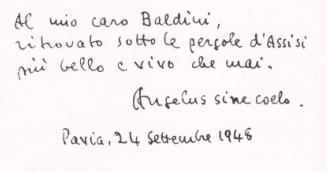 Al mio caro Baldini,
ritrovato sotto le pergole d'Assisi
più bello e vivo che mai.
Angelus sine coelo.
Pavia, 24 Settembre 1948